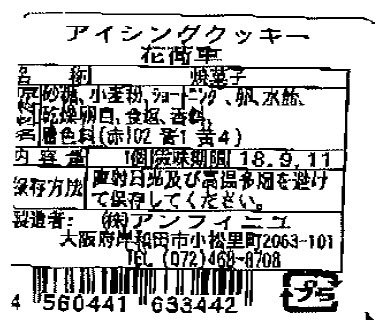 アイシングクッキー
花荷車
名称 焼菓子
原材料名 砂糖、小麦粉、ショートニング、卵、水飴、
乾燥卵白、食塩、香料、
着色料(赤102 青1 黄4)
内容量 1個 賞味期限 18.9.11
保存方法 直射日光及び高温多湿を避け
て保存してください。
製造者: ㈱アンフィニュ
大阪府岸和田市小松里町2063-101
TEL (072)468-8708
4 560441 633442 プラ